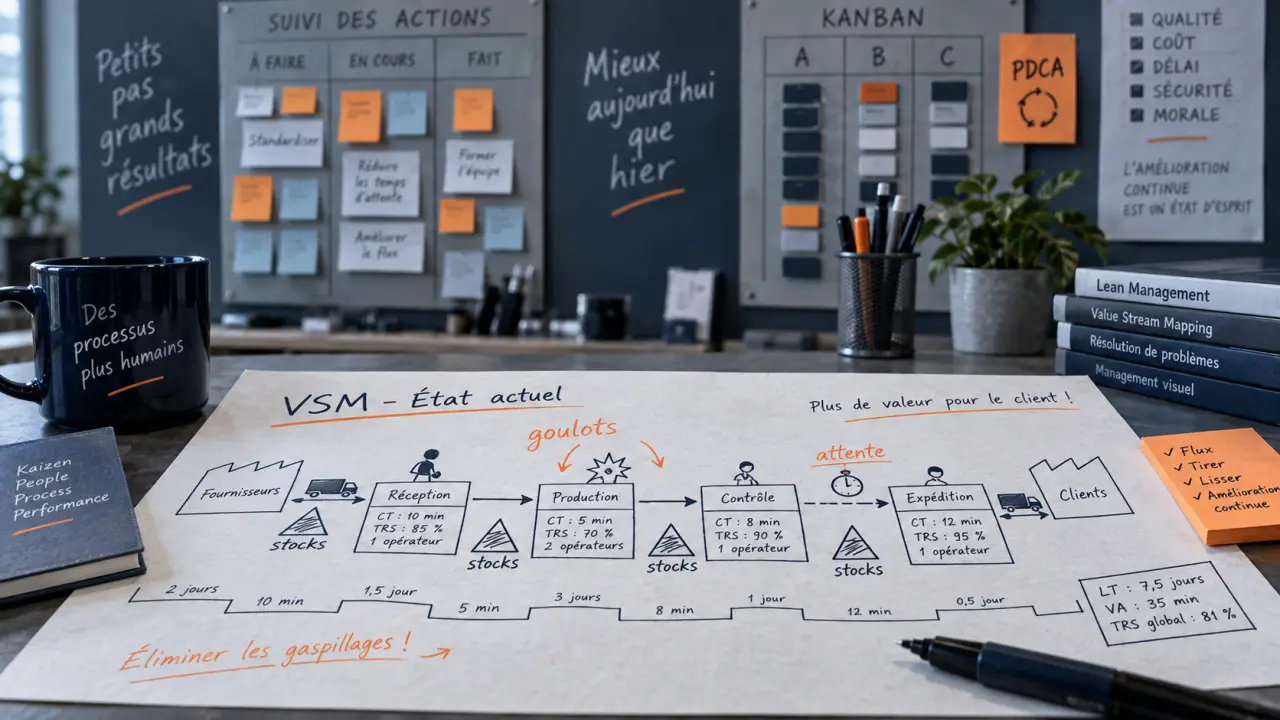 Petits
pas
grands
résultats
SUIVI DES ACTIONS
À FAIRE
EN COURS
FAIT
Standardiser
Réduire
les temps
d'attente
Améliorer
le flux
Former
l'équipe
Mieux
aujourd'hui
que
hier
KANBAN
A
B
C
PDCA
QUALITÉ
COÛT
DÉLAI
SÉCURITÉ
MORALE
L'AMÉLIORATION
CONTINUE
EST UN ÉTAT D'ESPRIT
Des
processus
plus humains
Lean Management
Value Stream Mapping
Résolution de problèmes
Management visuel
Kaizen
People
Process
Performance
✓ Flux
✓ Tirer
✓ Lisser
✓ Amélioration
continue
VSM - État actuel
Plus de valeur pour le client !
goulots
attente
Fournisseurs
stocks
Réception
CT : 10 min
TRS : 85 %
1 opérateur
stocks
Production
CT : 5 min
TRS : 70 %
2 opérateurs
stocks
Contrôle
CT : 8 min
TRS : 90 %
1 opérateur
stocks
Expédition
CT : 12 min
TRS : 95 %
1 opérateur
Clients
2 jours
10 min
1,5 jour
5 min
3 jours
8 min
1 jour
12 min
0,5 jour
LT : 7,5 jours
VA : 35 min
TRS global : 81 %
Éliminer les gaspillages !